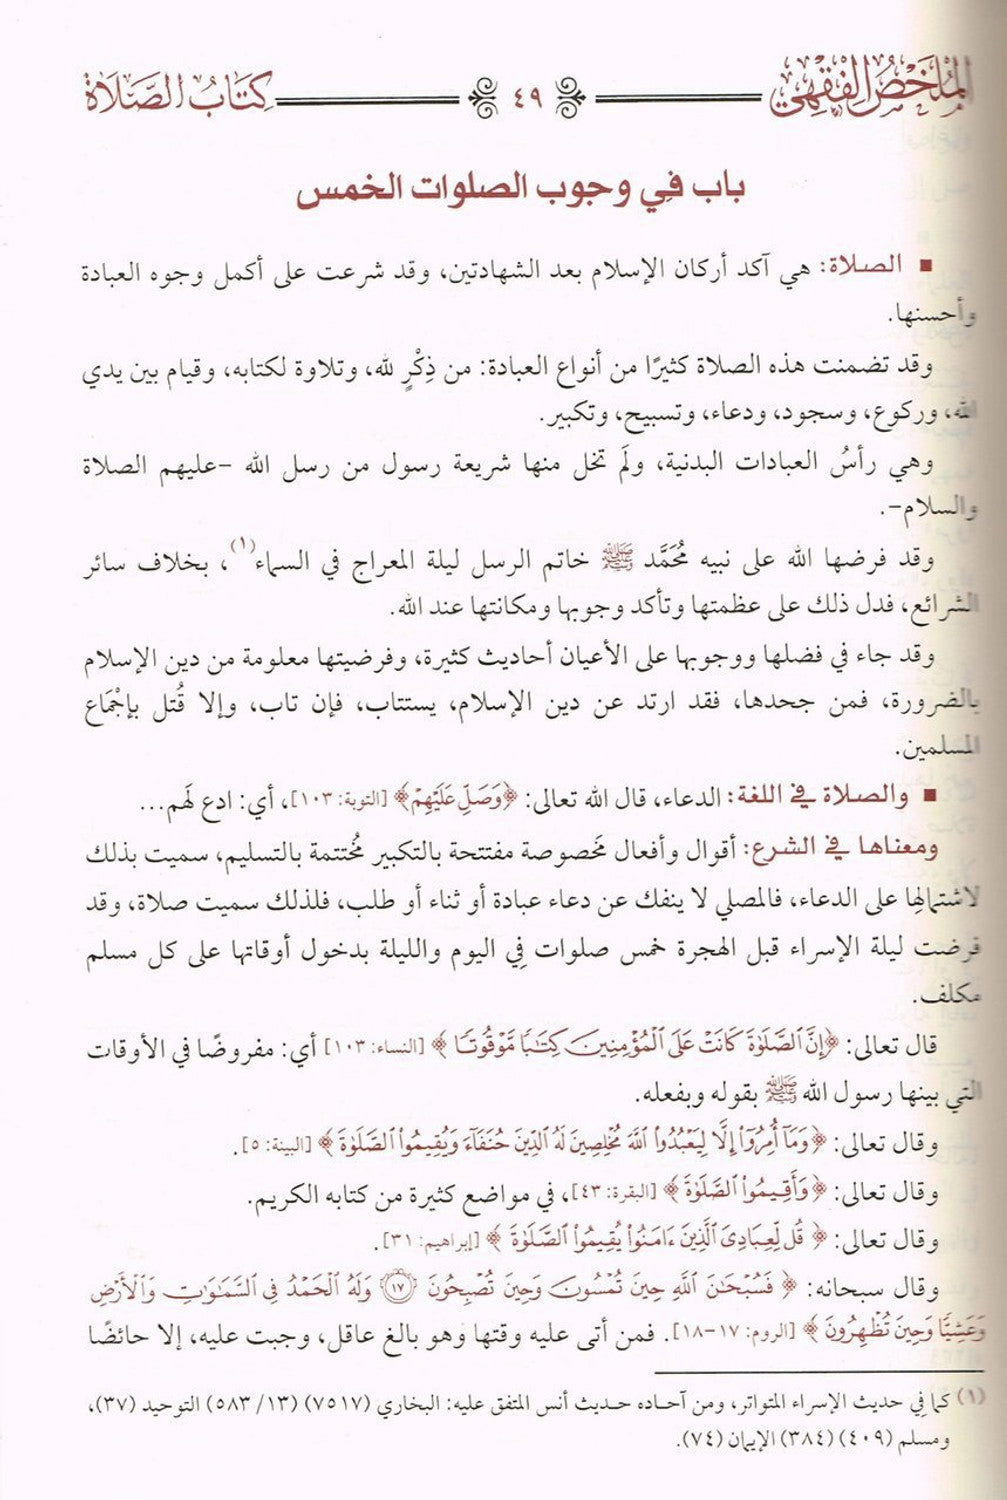 الملخص الفقهي ٤٩ كتاب الصلاة
باب في وجوب الصلوات الخمس
■ الصلاة: هي آكد أركان الإسلام بعد الشهادتين، وقد شرعت على أكمل وجوه العبادة
وأحسنها.
وقد تضمنت هذه الصلاة كثيرًا من أنواع العبادة: من ذِكْرٍ لله، وتلاوة لكتابه، وقيام بين يدي
الله، وركوع، وسجود، ودعاء، وتسبيح، وتكبير.
وهي رأسُ العبادات البدنية، ولَم تخل منها شريعة رسول من رسل الله -عليهم الصلاة
والسلام-.
وقد فرضها الله على نبيه مُحَمَّد ﷺ خاتم الرسل ليلة المعراج في السماء(١)، بخلاف سائر
الشرائع، فدل ذلك على عظمتها وتأكد وجوبها ومكانتها عند الله.
وقد جاء في فضلها ووجوبها على الأعيان أحاديث كثيرة، وفرضيتها معلومة من دين الإسلام
بالضرورة، فمن جحدها، فقد ارتد عن دين الإسلام، يستتاب، فإن تاب، وإلا قُتل بإجْمَاع
المسلمين.
■ والصلاة في اللغة: الدعاء، قال الله تعالى: ﴿وَصَلِّ عَلَيْهِمْ﴾ [التوبة: ١٠٣]، أي: ادع لَهم...
ومعناها في الشرع: أقوال وأفعال مَخصوصة مفتتحة بالتكبير مُختتمة بالتسليم، سميت بذلك
لاشتمالِها على الدعاء، فالمصلي لا ينفك عن دعاء عبادة أو ثناء أو طلب، فلذلك سميت صلاة، وقد
فرضت ليلة الإسراء قبل الهجرة خمس صلوات فِي اليوم والليلة بدخول أوقاتها على كل مسلم
مكلف.
قال تعالى: ﴿إِنَّ ٱلصَّلَوٰةَ كَانَتْ عَلَى ٱلْمُؤْمِنِينَ كِتَـٰبًا مَّوْقُوتًا﴾ [النساء: ١٠٣] أي: مفروضًا في الأوقات
التي بينها رسول الله ﷺ بقوله وبفعله.
وقال تعالى: ﴿وَمَآ أُمِرُوٓا۟ إِلَّا لِيَعْبُدُوا۟ ٱللَّهَ مُخْلِصِينَ لَهُ ٱلدِّينَ حُنَفَآءَ وَيُقِيمُوا۟ ٱلصَّلَوٰةَ﴾ [البينة: ٥].
وقال تعالى: ﴿وَأَقِيمُوا۟ ٱلصَّلَوٰةَ﴾ [البقرة: ٤٣]، في مواضع كثيرة من كتابه الكريم.
وقال تعالى: ﴿قُل لِّعِبَادِىَ ٱلَّذِينَ ءَامَنُوا۟ يُقِيمُوا۟ ٱلصَّلَوٰةَ﴾ [إبراهيم: ٣١].
وقال سبحانه: ﴿فَسُبْحَـٰنَ ٱللَّهِ حِينَ تُمْسُونَ وَحِينَ تُصْبِحُونَ ١٧ وَلَهُ ٱلْحَمْدُ فِى ٱلسَّمَـٰوَٰتِ وَٱلْأَرْضِ
وَعَشِيًّا وَحِينَ تُظْهِرُونَ﴾ [الروم: ١٧-١٨]. فمن أتى عليه وقتها وهو بالغ عاقل، وجبت عليه، إلا حائضًا
(١) كما فِي حديث الإسراء المتواتر، ومن آحاده حديث أنس المتفق عليه: البخاري (٧٥١٧) (١٣/ ٥٨٣) التوحيد (٣٧)،
ومسلم (٤٠٩) (٣٨٤) الإيمان (٧٤).